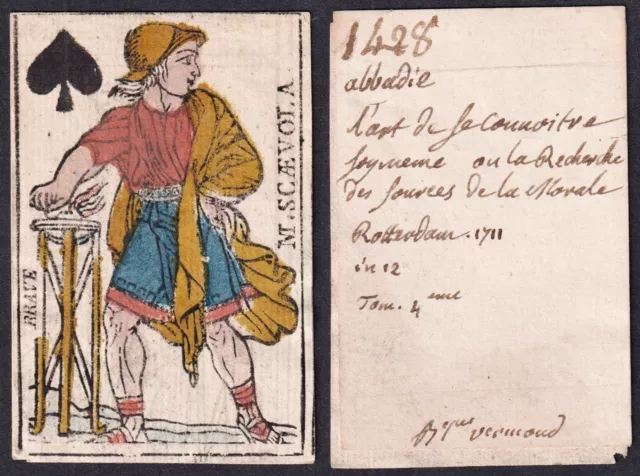 BRAVE
M. SCÆVOLA
1428
abbadie
l'art de se connoitre
soymeme ou la Recherche
des sources de la Morale
Rotterdam. 1711
in 12
Tom. 4eme
vermond